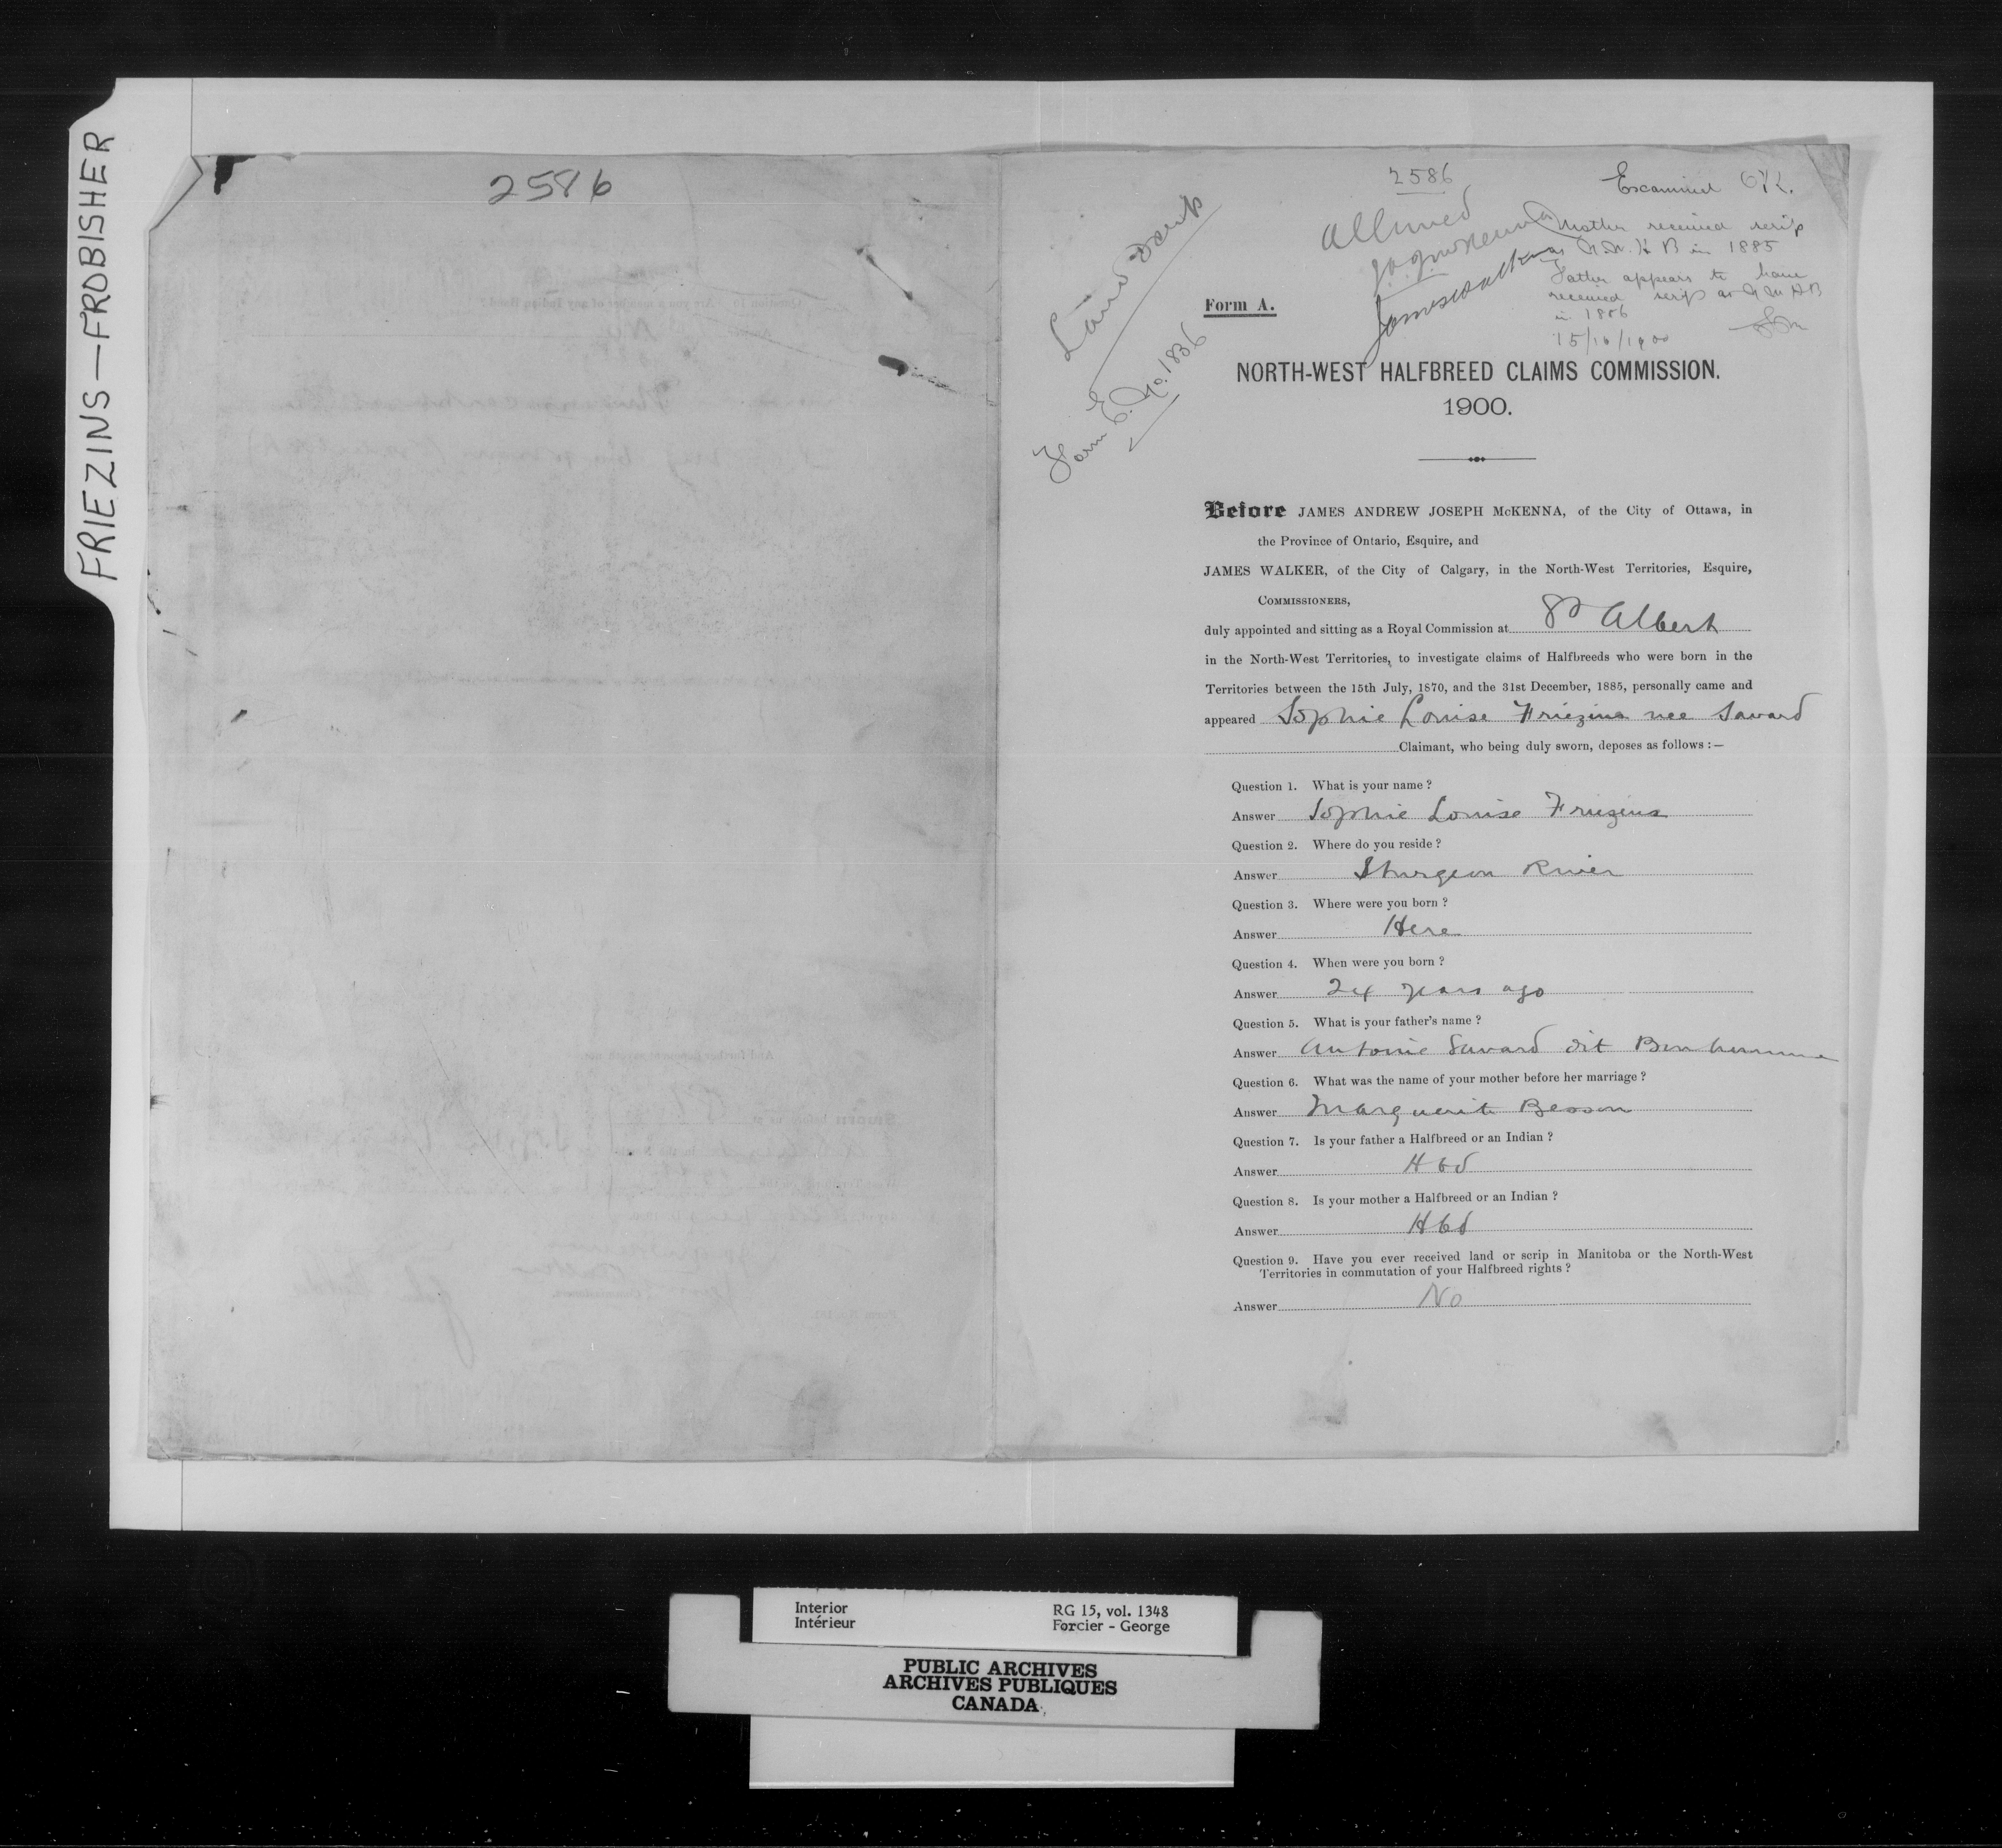 FRIEZINS—FROBISHER
2586
2586
Examined
Allowed
J.A.J. McKenna
James Walker
Mother received scrip
as N.W.H.B in 1885
Father appears to have
received scrip as N W H B
in 1886
15/10/1900
Land Scrip
Form E. No. 1836
Form A.
NORTH-WEST HALFBREED CLAIMS COMMISSION.
1900.
Before JAMES ANDREW JOSEPH McKENNA, of the City of Ottawa, in
the Province of Ontario, Esquire, and
JAMES WALKER, of the City of Calgary, in the North-West Territories, Esquire,
COMMISSIONERS,
duly appointed and sitting as a Royal Commission at St Albert
in the North-West Territories, to investigate claims of Halfbreeds who were born in the
Territories between the 15th July, 1870, and the 31st December, 1885, personally came and
appeared Sophie Louise Friezins nee Savard
Claimant, who being duly sworn, deposes as follows :—
Question 1. What is your name ?
Answer Sophie Louise Friezins
Question 2. Where do you reside ?
Answer Sturgeon River
Question 3. Where were you born ?
Answer Here
Question 4. When were you born ?
Answer 24 years ago
Question 5. What is your father's name ?
Answer Antoine Savard dit Bonhomme
Question 6. What was the name of your mother before her marriage ?
Answer Marguerite Besson
Question 7. Is your father a Halfbreed or an Indian ?
Answer Hbd
Question 8. Is your mother a Halfbreed or an Indian ?
Answer Hbd
Question 9. Have you ever received land or scrip in Manitoba or the North-West
Territories in commutation of your Halfbreed rights ?
Answer No
Interior RG 15, vol. 1348
Intérieur Forcier - George
PUBLIC ARCHIVES
ARCHIVES PUBLIQUES
CANADA